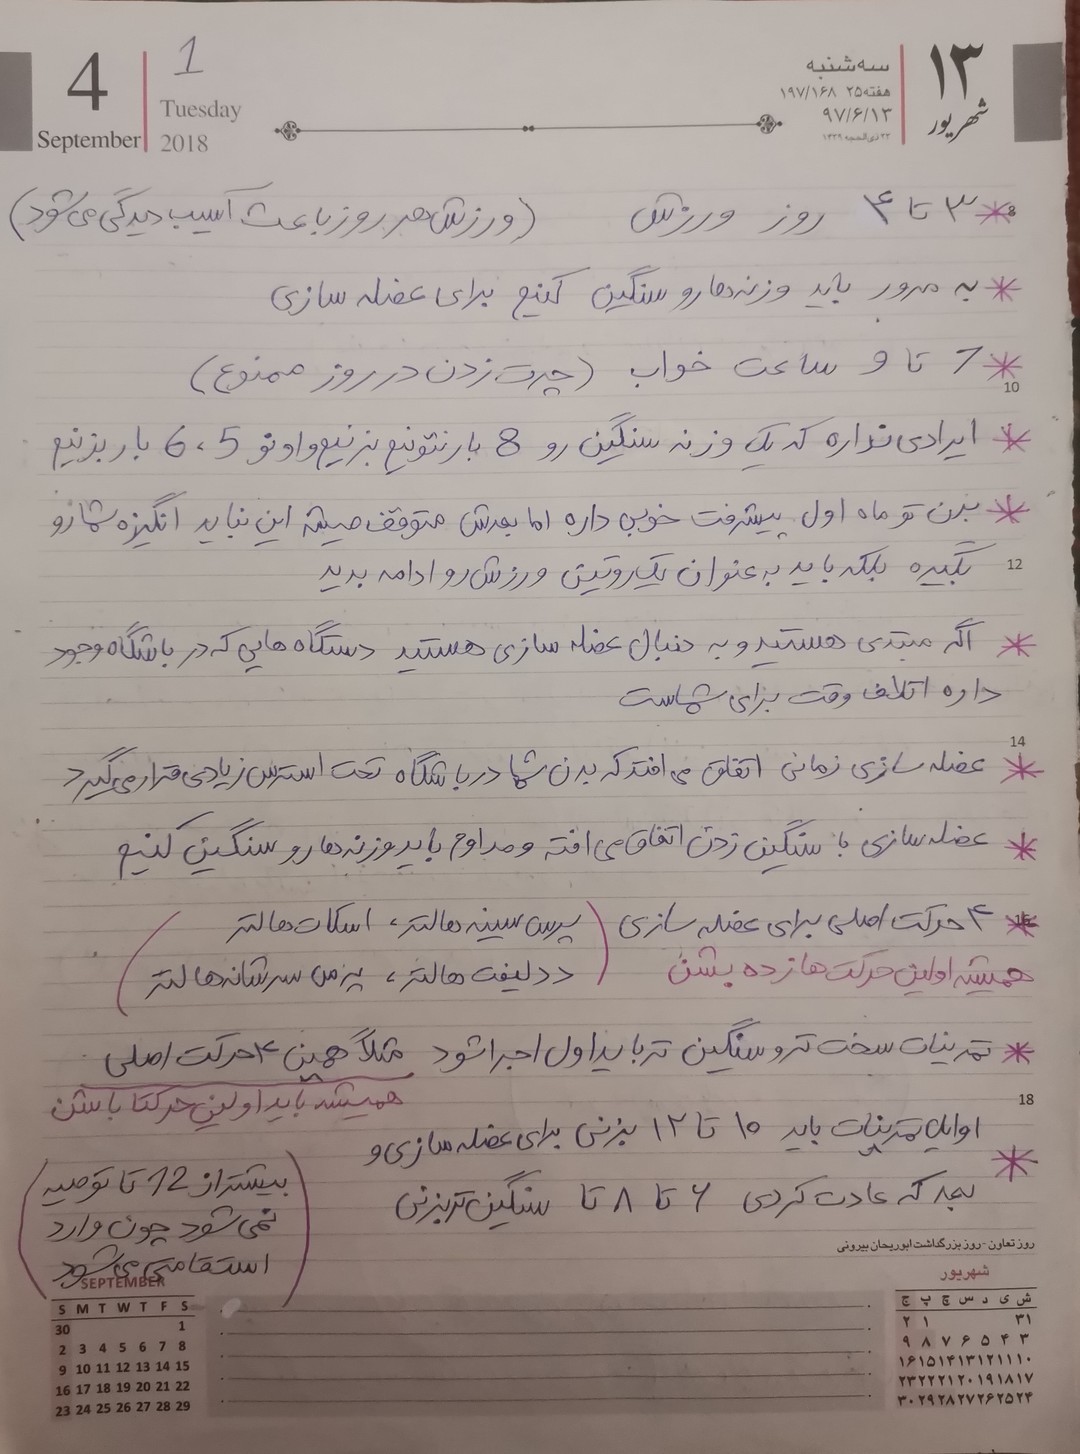 4
September
1
Tuesday
2018
سه‌شنبه
هفته ۲۵ ۱۹۷/۱۶۸
۹۷/۶/۱۳
۱۳
شهریور
8
* ۳ تا ۴ روز ورزش (ورزش هر روز باعث آسیب دیدگی می‌شود)
* به مرور باید وزنه‌ها رو سنگین کنیم برای عضله سازی
* 7 تا 9 ساعت خواب (چرت زدن در روز ممنوع)
10
* ایرادی نداره که یک وزنه سنگین رو 8 بار نتونیم بزنیم و اونو 5، 6 بار بزنیم
* بدن تو ماه اول پیشرفت خوبی داره اما بعدش متوقف میشه این نباید انگیزه شما رو
نگیره بلکه باید به عنوان یک روتین ورزش رو ادامه بدید
12
* اگه مبتدی هستید و به دنبال عضله سازی هستید دستگاه هایی که در باشگاه وجود
داره اتلاف وقت برای شماست
14
* عضله سازی زمانی اتفاق می افتد که بدن شما در باشگاه تحت استرس زیادی قرار می‌گیرد
* عضله سازی با سنگین زدن اتفاق می افته و مداوم باید وزنه ها رو سنگین کنیم
16
* ۴ حرکت اصلی برای عضله سازی (پرس سینه هالتر، اسکات هالتر
ددلیفت هالتر، پرس سرشانه هالتر)
همیشه اولین حرکت ها زده بشن
* تمرینات سخت تر و سنگین تر باید اول اجرا شود مثلاً همین ۴ حرکت اصلی
همیشه باید اولین حرکتا باشن
18
* اوایل تمرینات باید ۱۰ تا ۱۲ بزنی برای عضله سازی و
بعد که عادت کردی ۶ تا ۸ تا سنگین تر بزنی
(بیشتر از 12 تا توصیه
نمی شود چون وارد
استقامتی می‌شود)
روز تعاون - روز بزرگداشت ابوریحان بیرونی
SEPTEMBER
S M T W T F S
30 1
2 3 4 5 6 7 8
9 10 11 12 13 14 15
16 17 18 19 20 21 22
23 24 25 26 27 28 29
شهریور
ش ی د س چ پ ج
۳۱ ۱ ۲
۳ ۴ ۵ ۶ ۷ ۸ ۹
۱۰ ۱۱ ۱۲ ۱۳ ۱۴ ۱۵ ۱۶
۱۷ ۱۸ ۱۹ ۲۰ ۲۱ ۲۲ ۲۳
۲۴ ۲۵ ۲۶ ۲۷ ۲۸ ۲۹ ۳۰